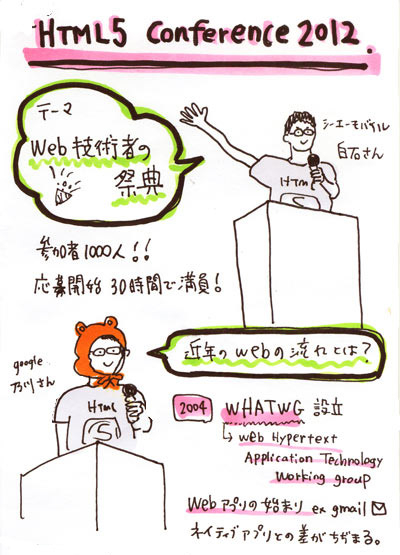 HTML5 Conference 2012.
テーマ
Web技術者の
祭典
シーエーモバイル
白石さん
HTML
5
参加者1000人!!
応募開始 30時間で満員!
近年のwebの流れとは?
google
及川さん
HTML
5
2004 WHATWG 設立
↳ web Hypertext
Application Technology
Working group
Webアプリの始まり ex gmail
ネイティブアプリとの差がちぢまる。